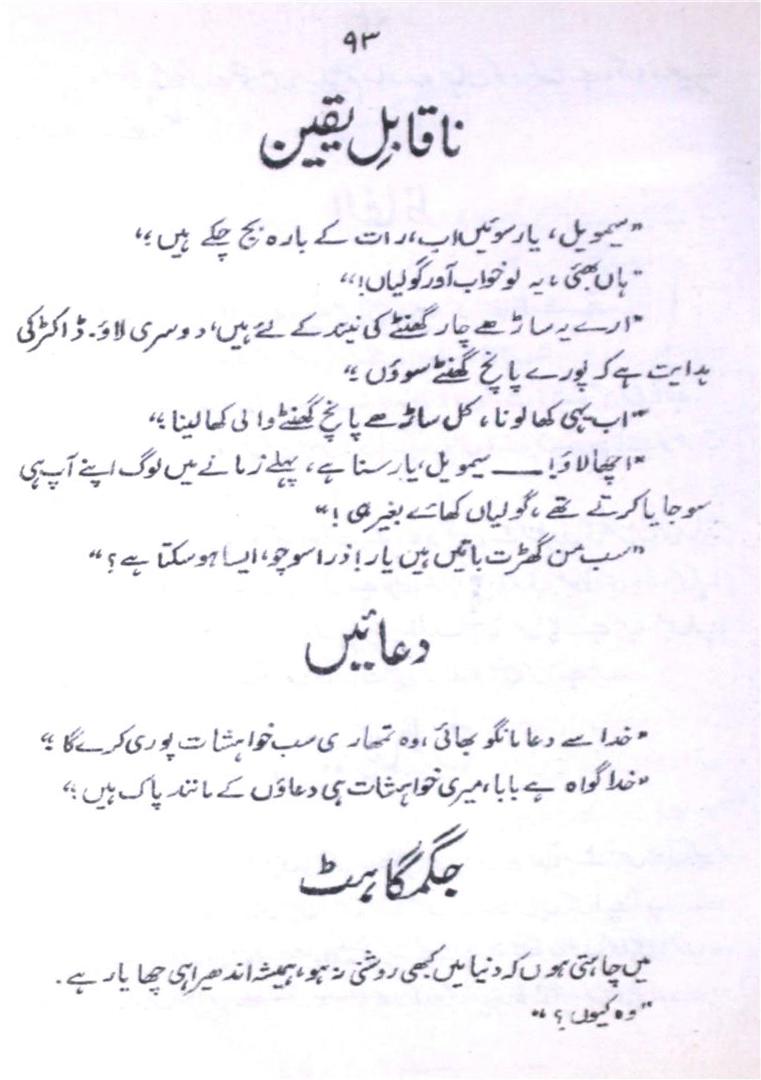 ۹۳
ناقابلِ یقین
”سیمویل، یار سوئیں اب، رات کے بارہ بج چکے ہیں۔“
”ہاں بھئی، یہ لو خواب آور گولیاں!“
”ارے یہ ساڑھے چار گھنٹے کی نیند کے لئے ہیں، دوسری لاؤ۔ ڈاکٹر کی
ہدایت ہے کہ پورے پانچ گھنٹے سوؤں۔“
”اب یہی کھا لو نا، کل ساڑھے پانچ گھنٹے والی کھا لینا۔“
”اچھا لاؤ! — سیمویل، یار سنا ہے، پہلے زمانے میں لوگ اپنے آپ ہی
سو جایا کرتے تھے، گولیاں کھائے بغیر ہی!“
”سب من گھڑت باتیں ہیں یار! ذرا سوچو، ایسا ہو سکتا ہے؟“
دعائیں
”خدا سے دعا مانگو بھائی، وہ تمھاری سب خواہشات پوری کرے گا۔“
”خدا گواہ ہے بابا، میری خواہشات ہی دعاؤں کے مانند پاک ہیں۔“
جگمگاہٹ
میں چاہتی ہوں کہ دنیا میں کبھی روشنی نہ ہو، ہمیشہ اندھیرا ہی چھایا رہے۔
”وہ کیوں؟“